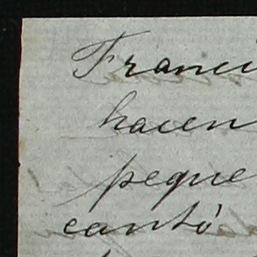 Franci
hacen
peque
cantó